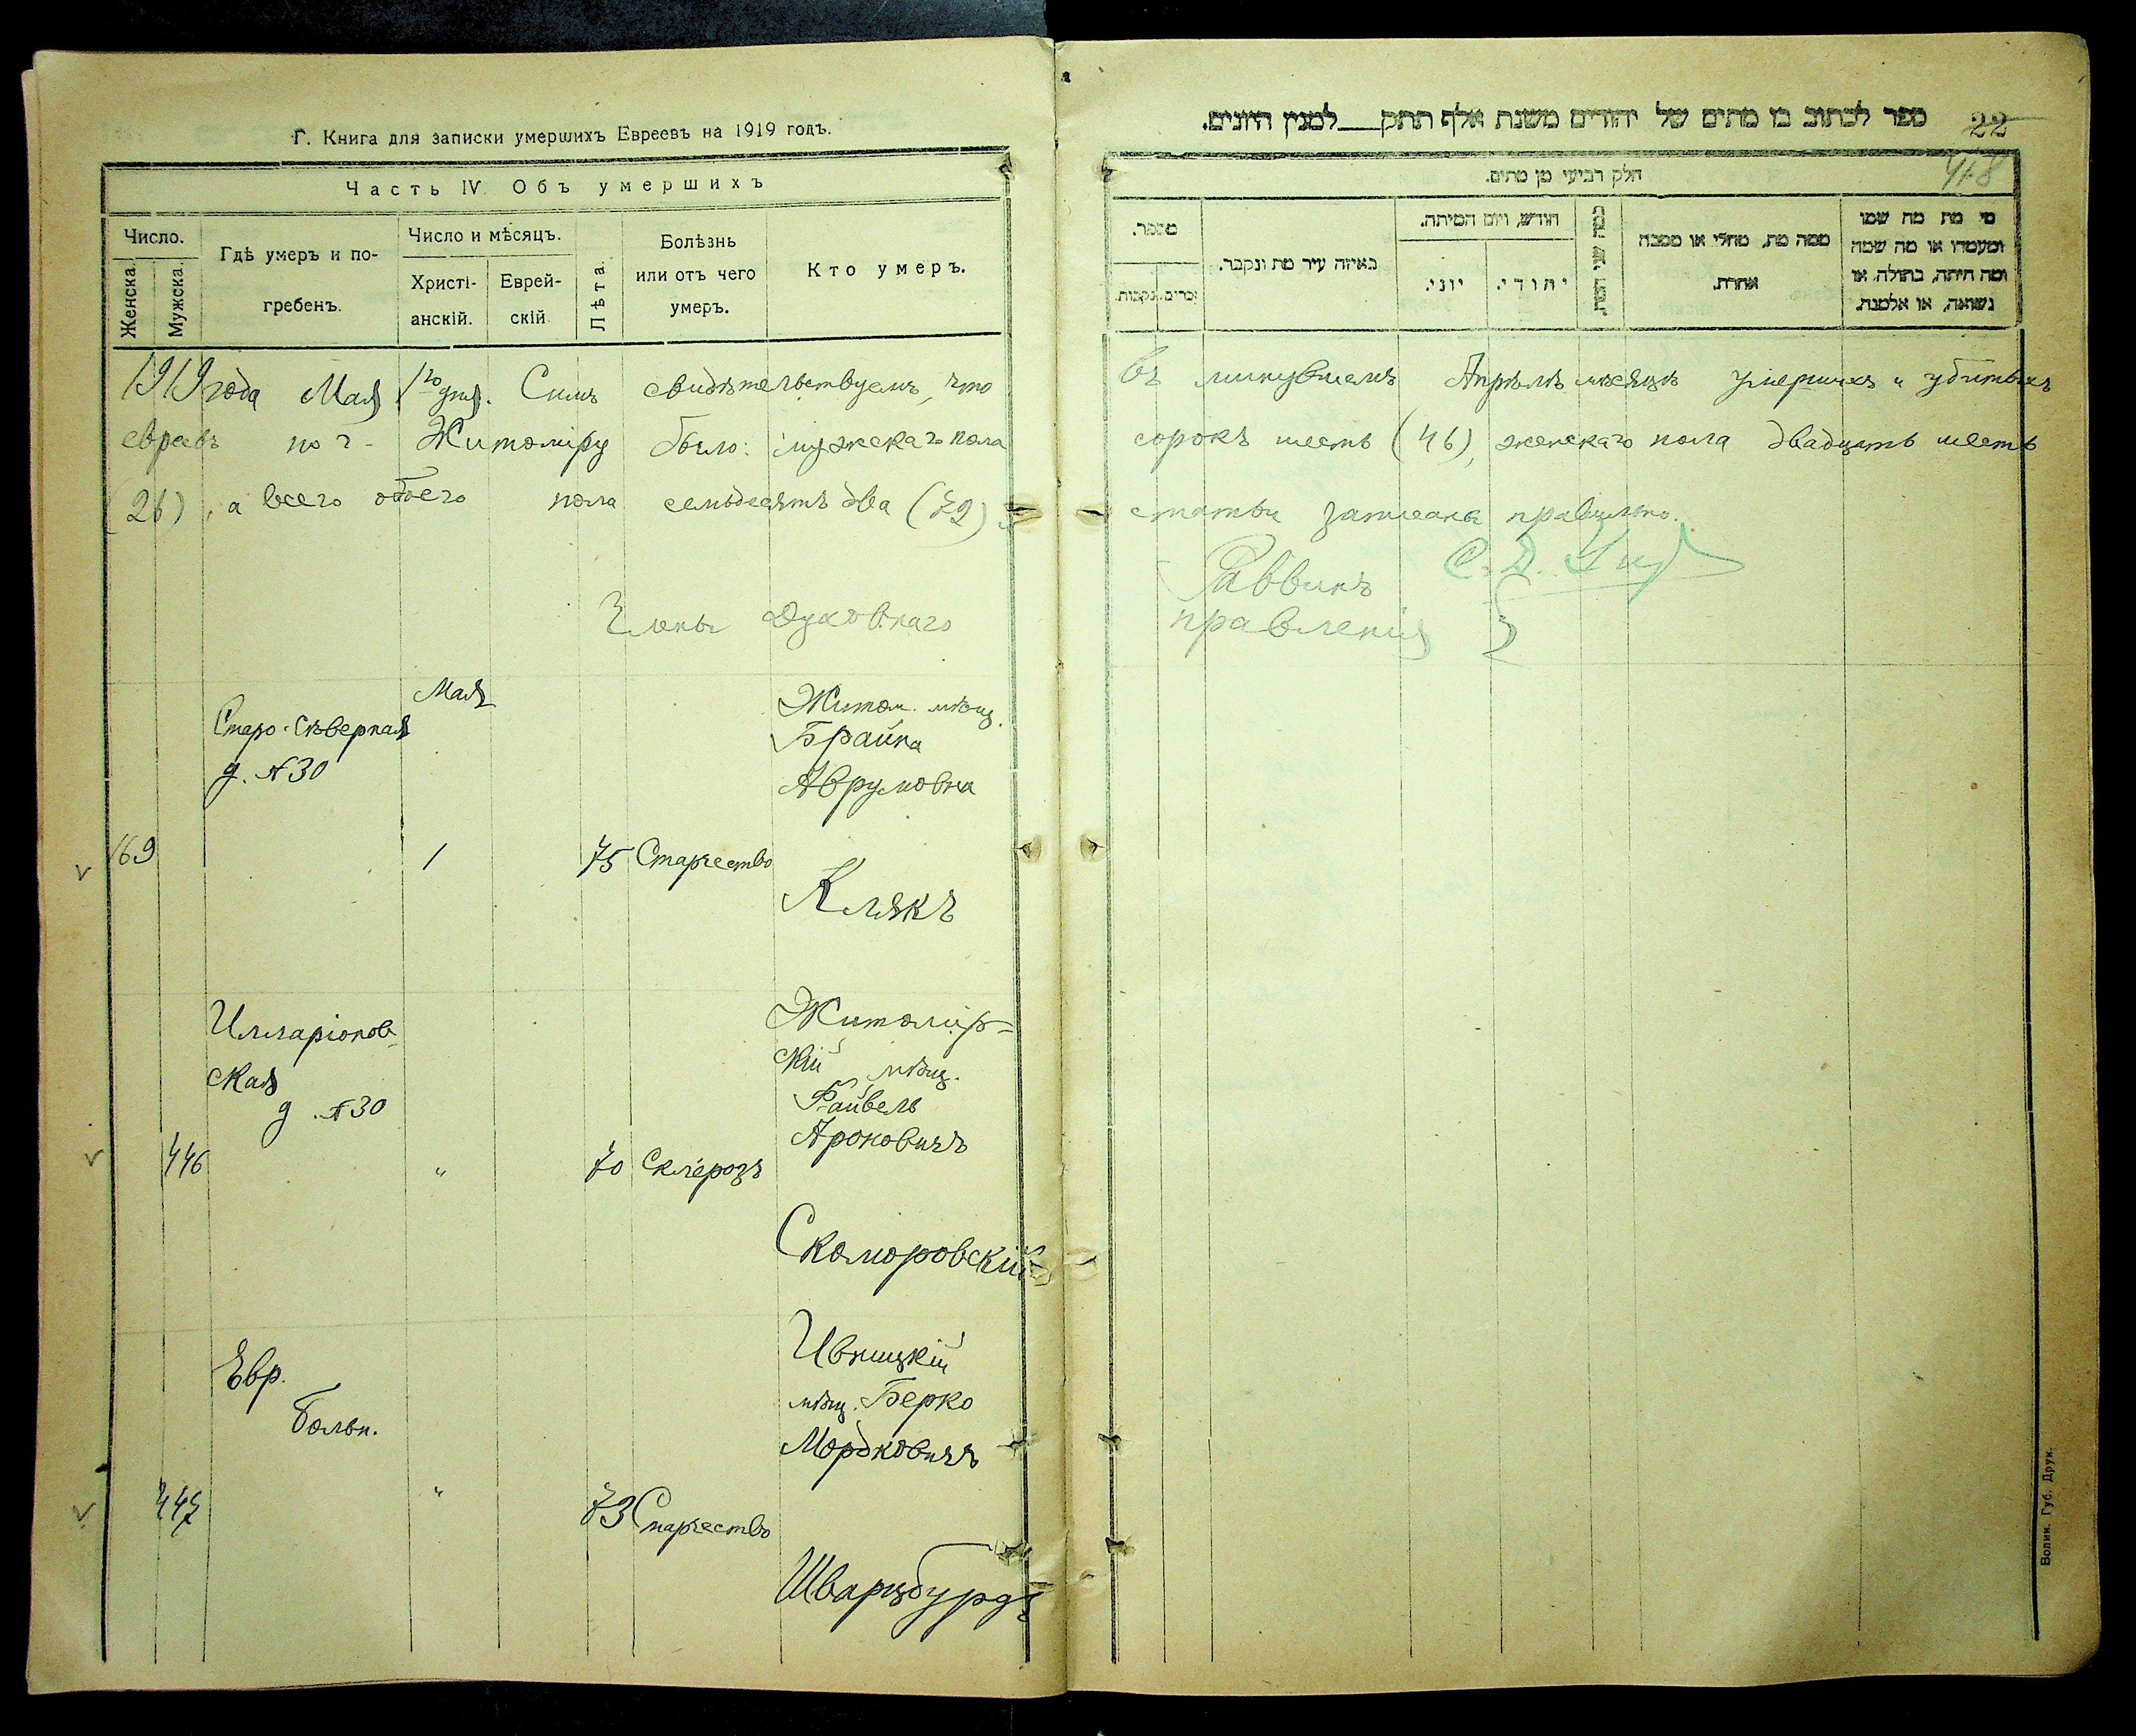 Г. Книга для записки умершихъ Евреевъ на 1919 годъ.
Часть IV. Объ умершихъ
Число.
Женска.
Мужска.
Гдѣ умеръ и по-
гребенъ.
Число и мѣсяцъ.
Христі-
анскій.
Еврей-
скій
Лѣта.
Болѣзнь
или отъ чего
умеръ.
Кто умеръ.
1919 года Мая 1го дня. Симъ свидѣтельствуемъ, что
евреевъ по г. Житоміру было: мужескаго пола
(26), а всего обоего пола семьдесятъ два (72)
Члены Духовнаго
Мая
Старо-Сѣверная
д. №30
Житом. мѣщ.
Брайна
Аврумовна
169
1
75
Старчество
Клякъ
Илларіонов-
ская
д. №30
Житомір-
скій мѣщ.
Файвель
Ароновичъ
446
"
70
Склерозъ
Скоморовскій
Евр.
больн.
Ивницкій
мѣщ. Берко
Мордковичъ
447
"
73
Старчество
Шварцбурдъ
ספר לכתוב בו מתים של יהודים משנת אלף תתק למנין היונים.
22
418
חלק רביעי מן מתים.
מי מת מה שמו
ומעמדו או מה שמה
ומה היתה, בתולה, או
נשואה, או אלמנה.
ממה מת, מחלי או מסבה
אחרת.
כמה שני המת.
חודש, ויום המיתה.
יהודי.
יוני.
באיזה עיר מת ונקבר.
מספר.
זכרים.
נקבות.
въ минувшемъ Апрѣлѣ мѣсяцѣ умершихъ и убитыхъ
сорокъ шесть (46), женскаго пола двадцать шесть
статьи записаны правильно.
Раввинъ
правленія
Волин. Губ. Друк.